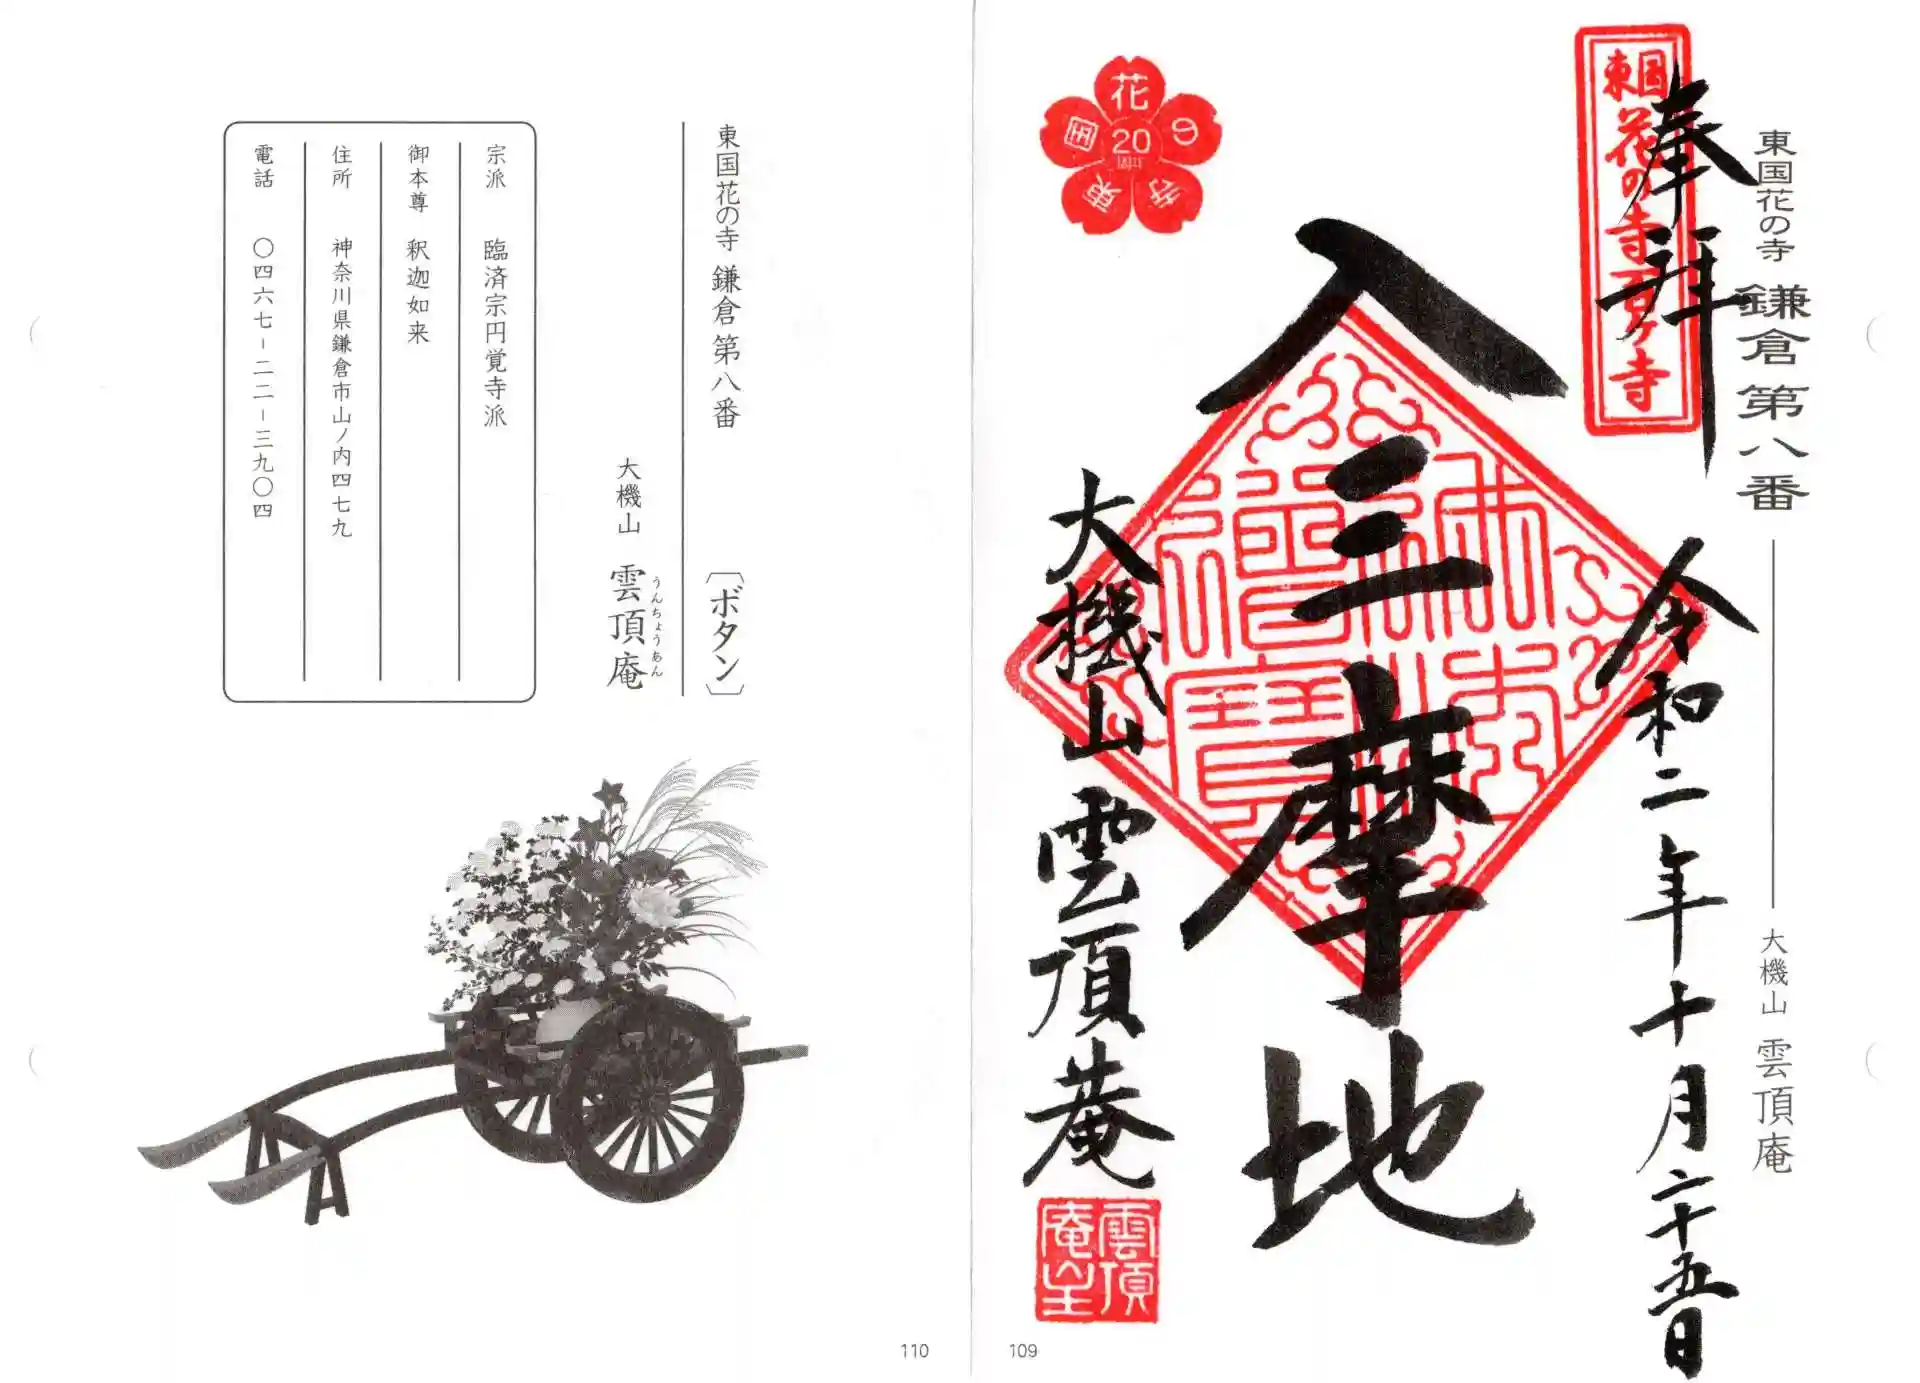 東国花の寺 鎌倉第八番
大機山 雲頂庵
東国
花の寺百ヶ寺
奉拝
令和二年十月二十五日
入三摩地
佛法
僧寳
花の寺東国
20
周年
大機山 雲頂菴
雲頂
庵
109
東国花の寺 鎌倉第八番 〔ボタン〕
大機山 雲頂庵
うんちょうあん
宗派 臨済宗円覚寺派
御本尊 釈迦如来
住所 神奈川県鎌倉市山ノ内四七九
電話 〇四六七-二二-三九〇四
110